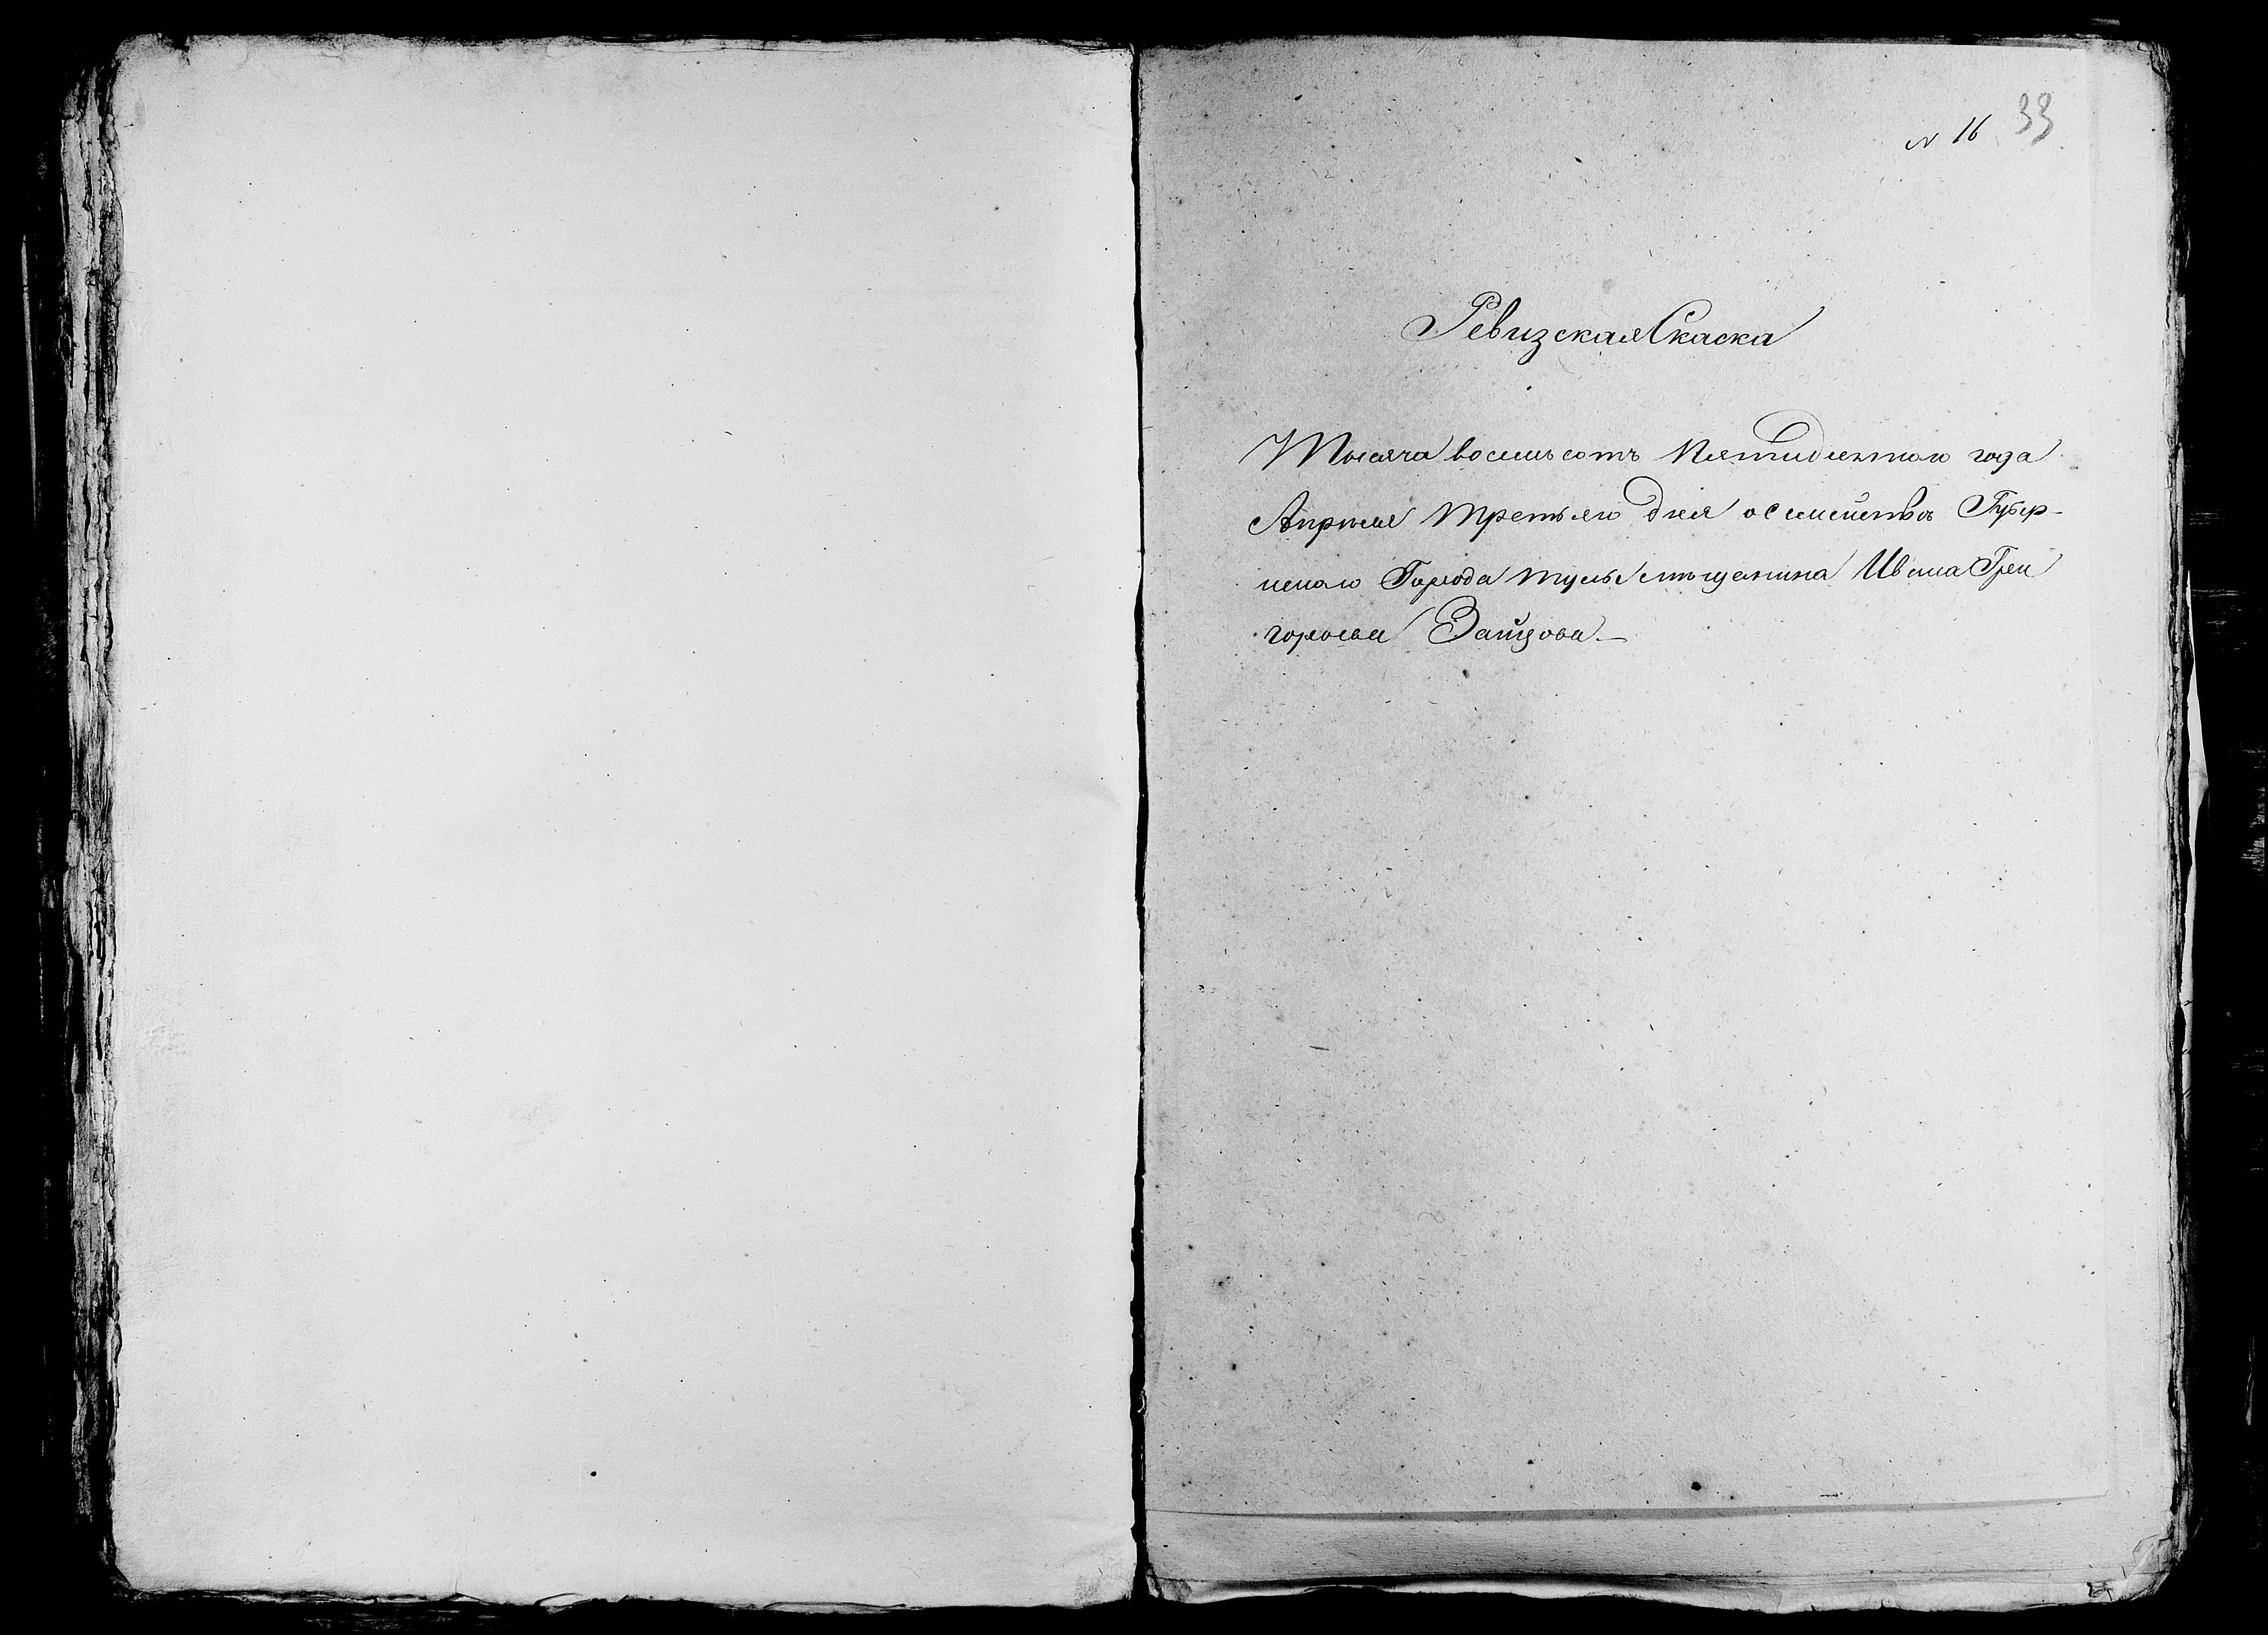 N 16 33
Ревизская Скаска
Тысяча восемьсотъ Пятидесятого года
Апреля третьяго дня о семействе Губер-
нскаго Города тулы мещанина Ивана Гри
горьева Зайцова. —